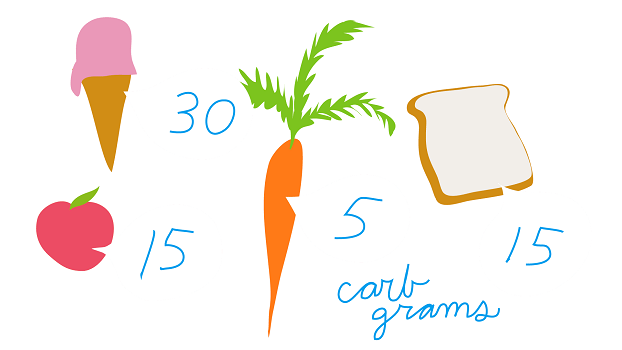 30
15
5
15
carb
grams